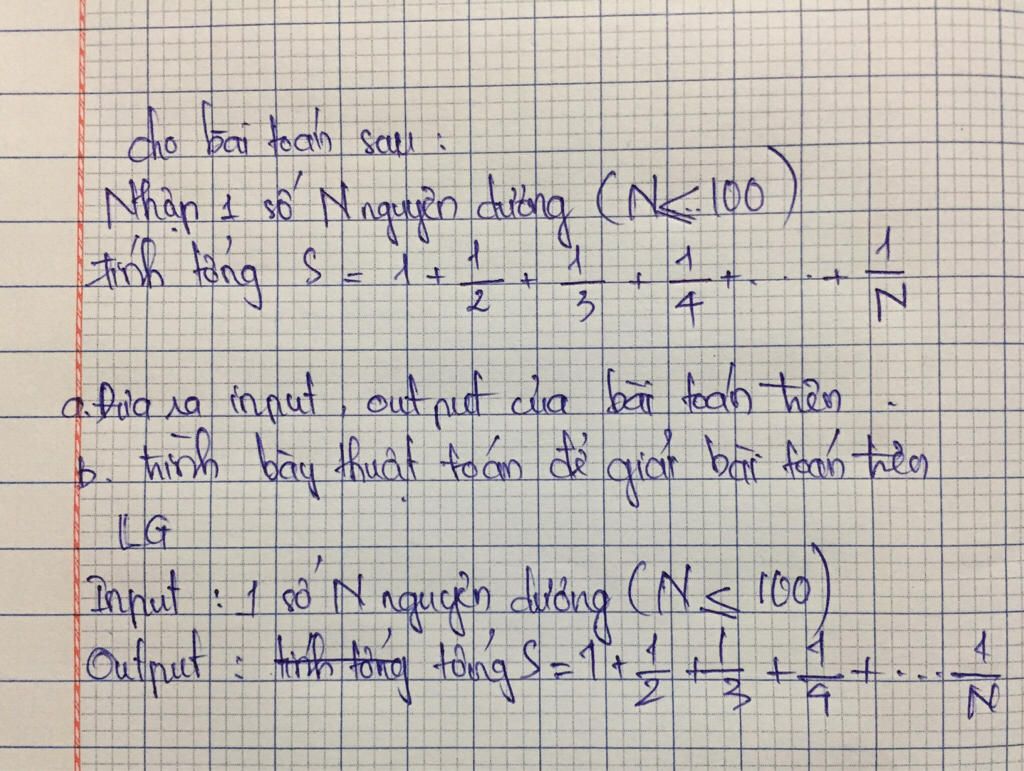 cho bài toán sau :
Nhập 1 số N nguyên dương (N ≤ 100)
tính tổng S = 1 + 1/2 + 1/3 + 1/4 + ..... + 1/N
a. Đưa ra input, output của bài toán trên .
b. trình bày thuật toán để giải bài toán trên
LG
Input : 1 số N nguyên dương (N ≤ 100)
Output : tính tổng tổng S = 1 + 1/2 + 1/3 + 1/4 + ... 1/N